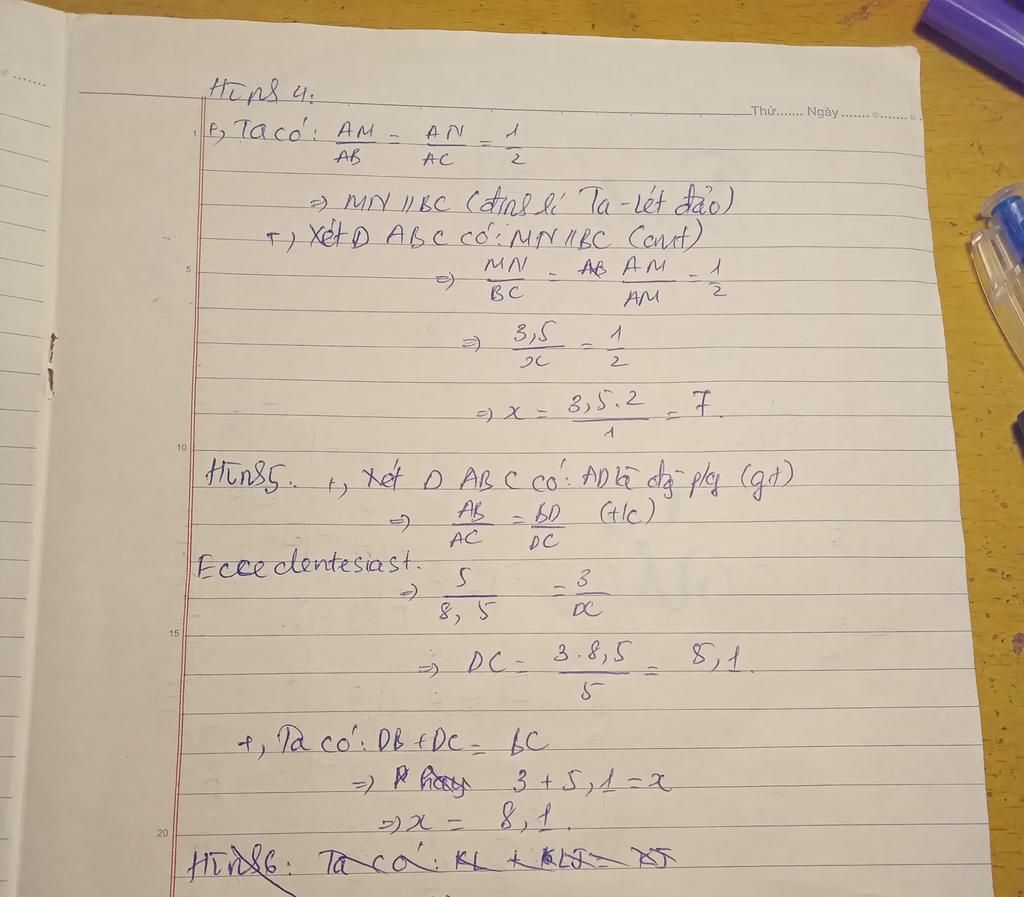 Hình 4:
Thứ....... Ngày ....... ........
+, Ta có: AM/AB = AN/AC = 1/2
=> MN // BC (định lí Ta-lét đảo)
+, Xét D ABC có: MN // BC (cmt)
5
=> MN/BC = AB AM/AM = 1/2
=> 3,5/x = 1/2
=> x = 3,5.2/1 = 7.
10
Hình 5. +, Xét D ABC có: AD là đg pkg (gt)
=> AB/AC = BD/DC (t/c)
Eccedentesiast.
=> 5/8,5 = 3/DC
15
=> DC = 3.8,5/5 = 5,1.
+, Ta có: DB + DC = BC
=> hay 3 + 5,1 = x
=> x = 8,1.
20
Hình 6: Ta có: KL + KLJ = KJ